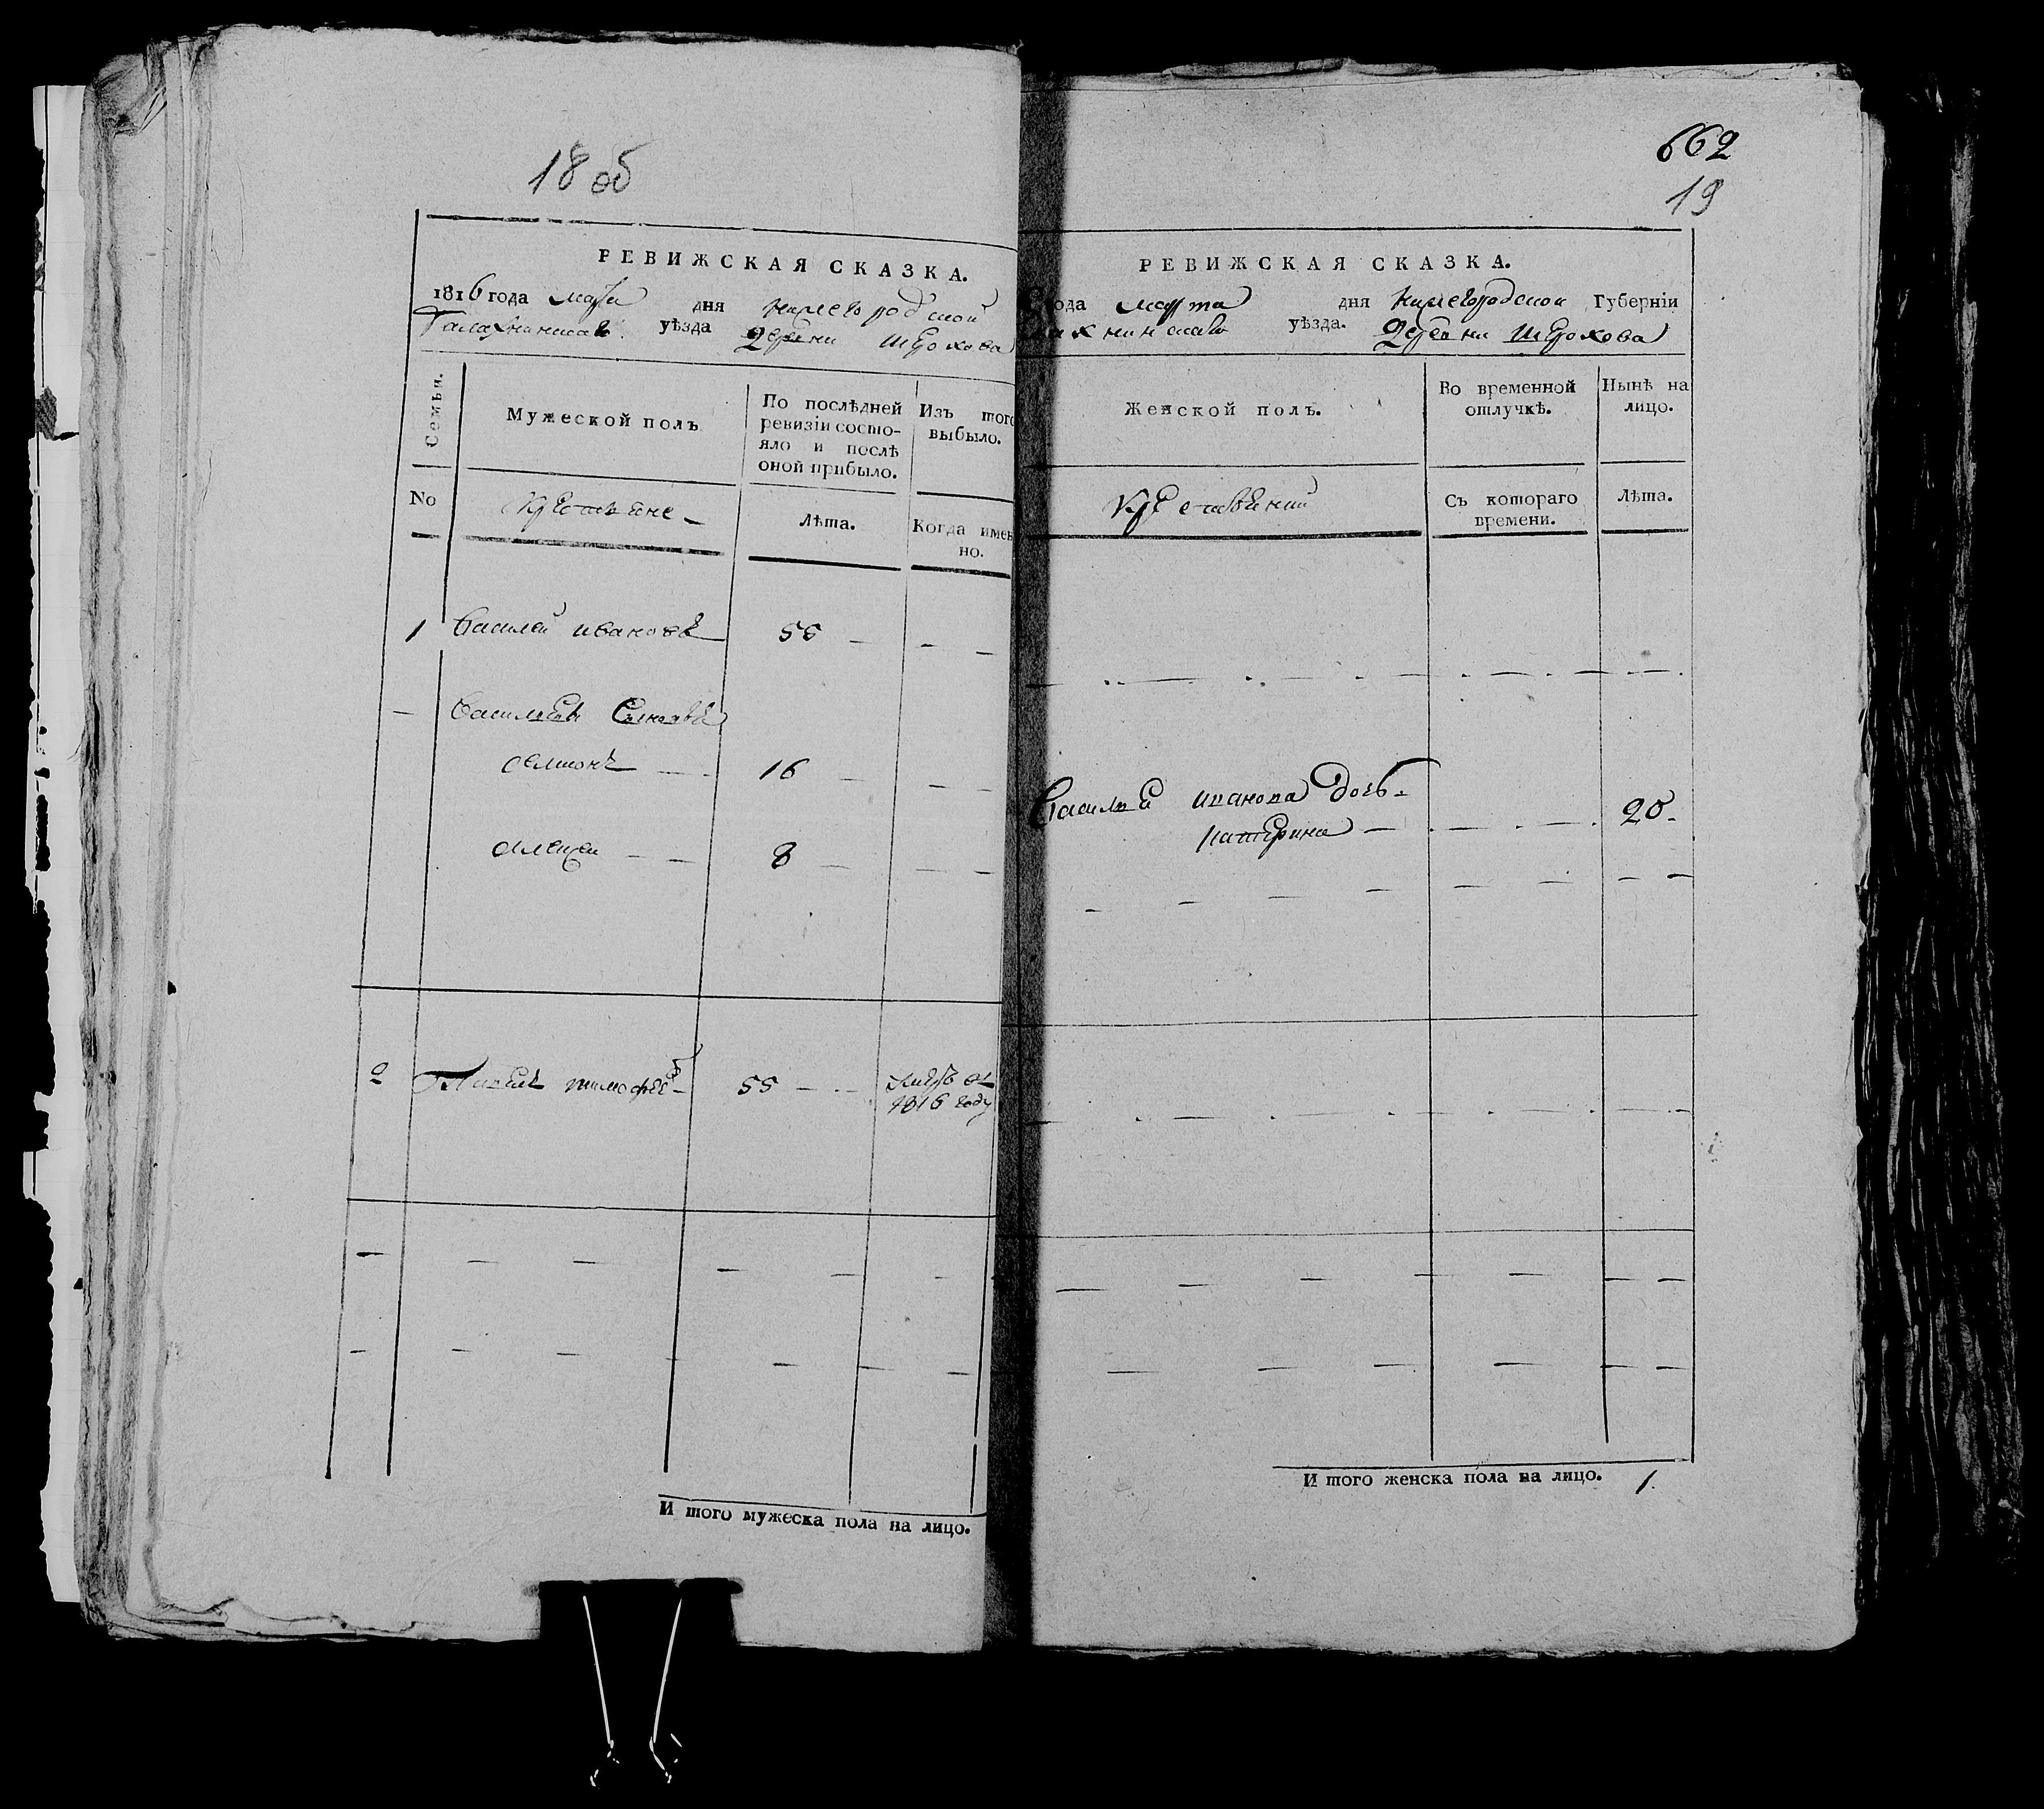 18 об
РЕВИЖСКАЯ СКАЗКА.
1816 года марта дня нижегородской
уѣзда деревни
Семья.
Мужеской полъ
По послѣдней
ревизіи состо-
яло и послѣ
оной прибыло.
Изъ того
выбыло.
No
крестьяне
Лѣта.
Когда имен
но.
1 Василей ивановъ 55
Васильевы Сыновья
16
алексей 8
2 тимофеев 55
1816 году
И того мужеска пола на лицо.
662
19
РЕВИЖСКАЯ СКАЗКА.
года марта дня нижегородской Губерніи
уѣзда. деревни
Женской полъ.
Во временной
отлучкѣ.
Нынѣ на
лицо.
Съ котораго
времени.
Лѣта.
Василей иванова дочь
катерина 20
И того женска пола на лицо. 1.